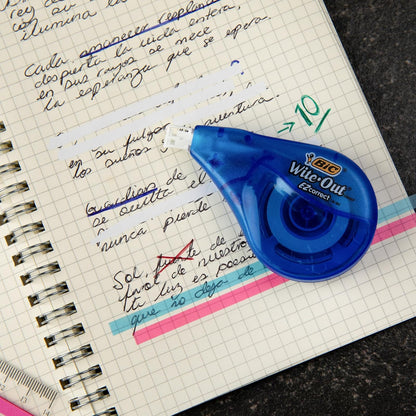 rey de
con su
ilumina la
Cada amanecer resplan
despierta la vida entera,
en sus rayos se mece
la esperanza que se espera.
en su fulgor
los sueños aventura.
10
Guardián de
se oculta el
nunca pierde
Sol, fuente de
de nuestro
tu luz es poesía
que no deja de
BIC
Wite·Out
EZ correct
13 14